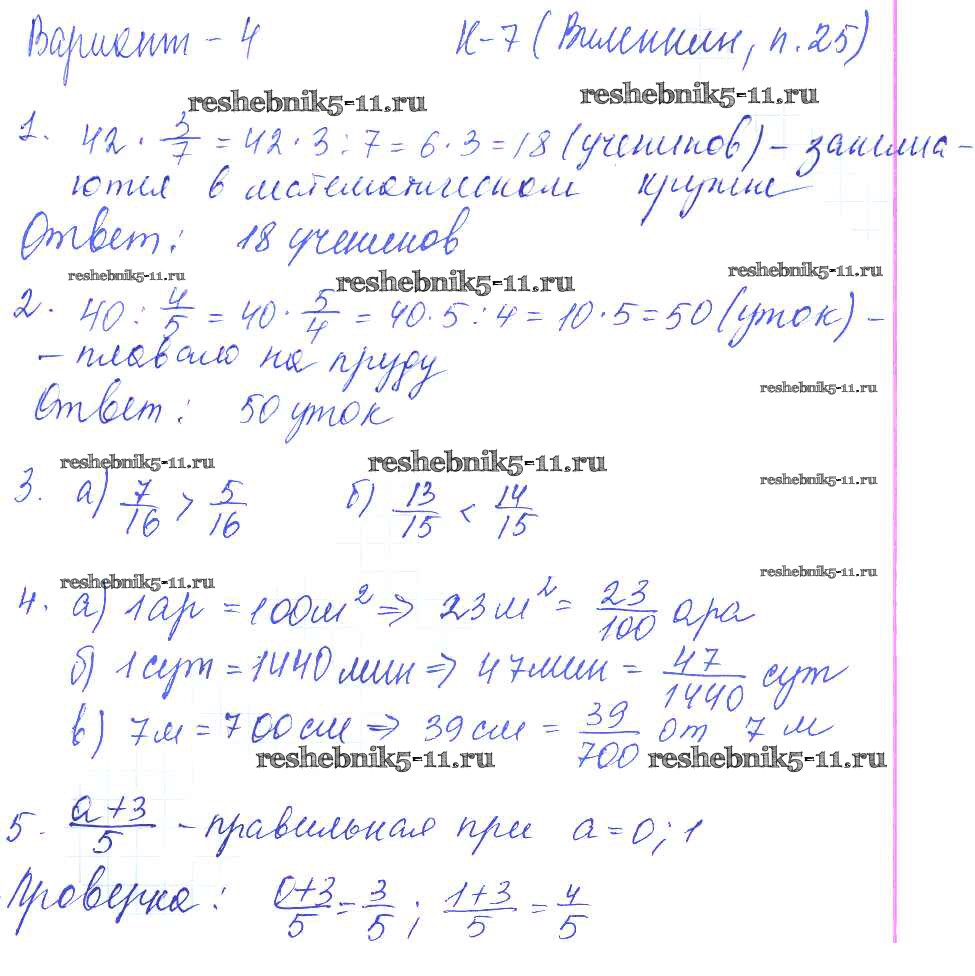 Вариант - 4 К-7 (Виленкин, п.25)
reshebnik5-11.ru reshebnik5-11.ru
1. 42 · 3/7 = 42 · 3 : 7 = 6 · 3 = 18 (учеников) - занима-
ются в математическом кружке
Ответ: 18 учеников
reshebnik5-11.ru reshebnik5-11.ru reshebnik5-11.ru
2. 40 : 4/5 = 40 · 5/4 = 40 · 5 : 4 = 10 · 5 = 50 (уток) -
- плавало на пруду
reshebnik5-11.ru
Ответ: 50 уток
reshebnik5-11.ru reshebnik5-11.ru reshebnik5-11.ru
3. а) 7/16 > 5/16 б) 13/15 < 14/15
reshebnik5-11.ru reshebnik5-11.ru
4. а) 1 ар = 100 м² => 23 м² = 23/100 ара
б) 1 сут = 1440 мин => 47 мин = 47/1440 сут
в) 7 м = 700 см => 39 см = 39/700 от 7 м
reshebnik5-11.ru reshebnik5-11.ru
5. a+3/5 - правильная при a = 0; 1
Проверка: 0+3/5 = 3/5; 1+3/5 = 4/5